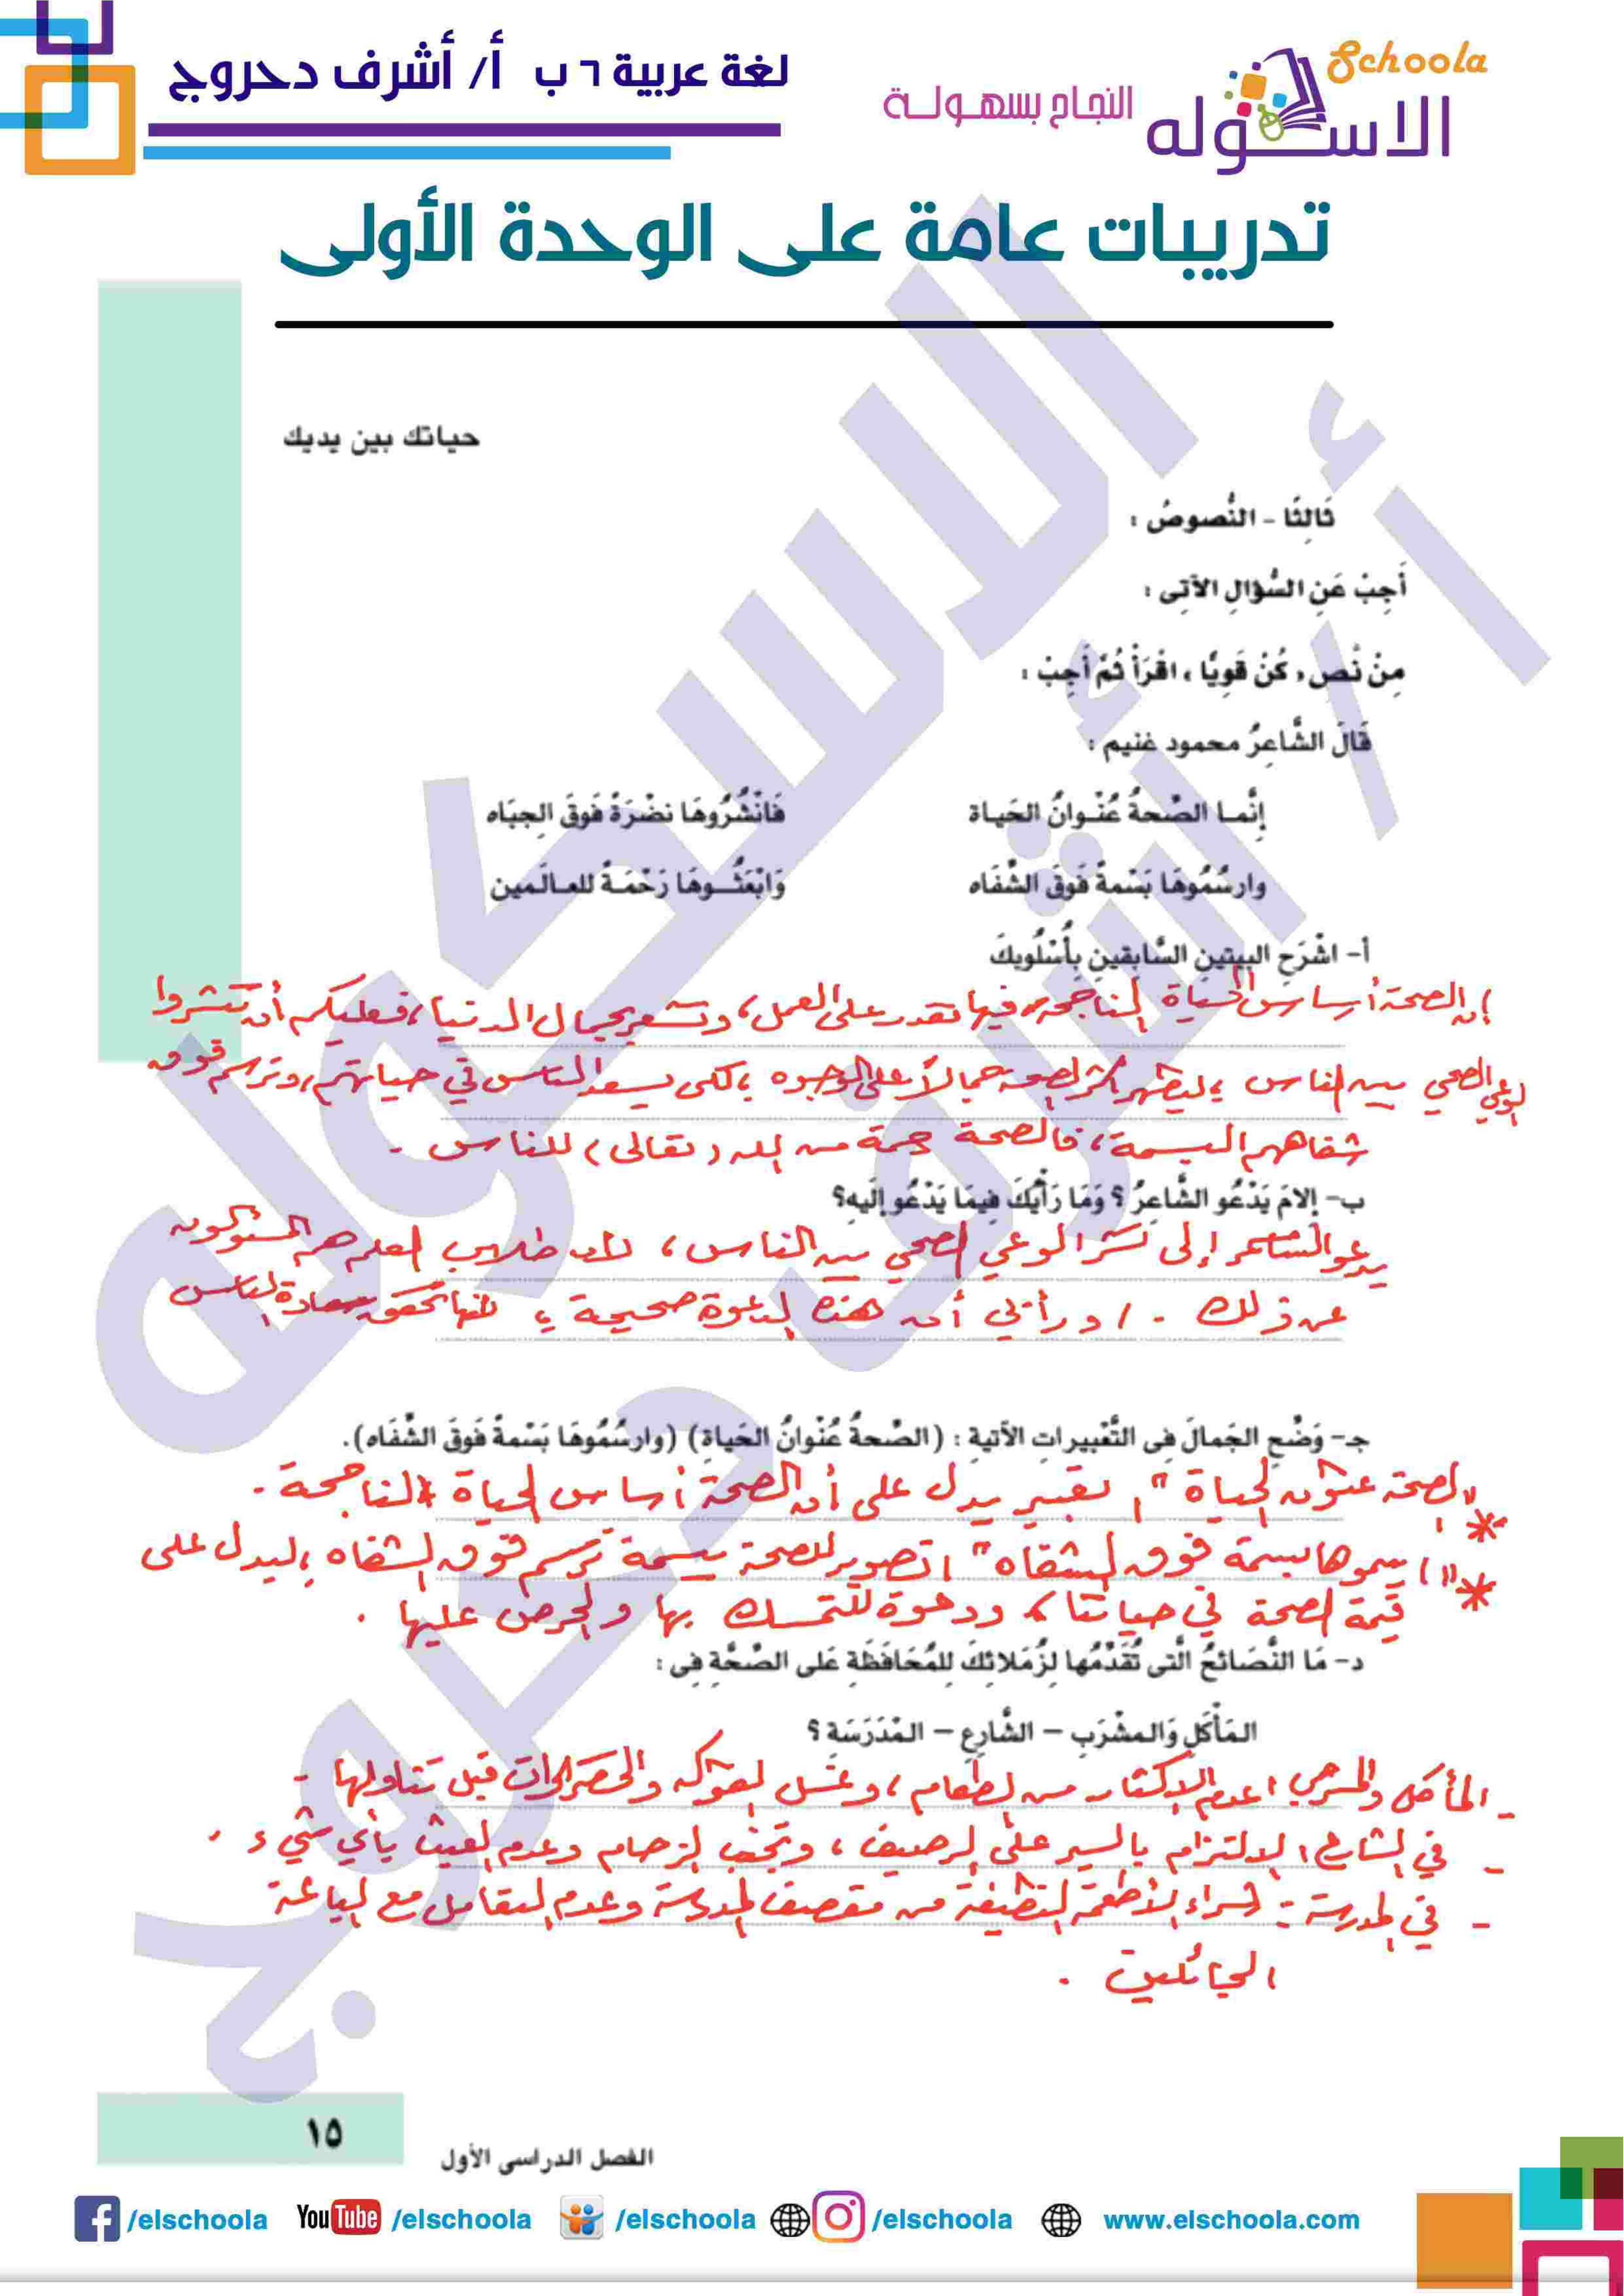 لغة عربية ٦ ب أ/ أشرف دحروج
Schoola
الاسكوله
النجاح بسهولة
تدريبات عامة على الوحدة الأولى
حياتك بين يديك
ثَالِثًا - النُّصوصُ :
أَجِبْ عَنِ السُّؤالِ الآتِى :
مِنْ نَّص « كُنْ قَوِيًّا ، اقْرَأْ ثُمَّ أَجِبْ :
قَالَ الشَّاعِرُ محمود غنيم :
إنَّمـا الصِّحةُ عُنْـوانُ الحَيـاة فَانْشُرُوهَا نضْرَةً فَوقَ الجِبَاه
وارسُمُوهَا بَسْمةً فَوقَ الشِّفَاه وَابْعَثُــوهَا رَحْمَـةً للعـالَـمين
أ- اشْرَحِ البيتينِ السَّابقينِ بِأُسْلُوبِكَ
إن الصحة أساس الحياة الناجحة، فبها تقدر على العمل، وتشعر بجمال الدنيا، فعليكم أن تنشروا
الوعي الصحي بين الناس ؛ ليظهر أثر الصحة جمالاً على الوجوه ، لكى يسعد الناس في حياتهم، وترسم فوق
شفاههم البسمة، فالصحة رحمة من الله (تعالى) للناس .
ب- إلامَ يَدْعُو الشَّاعِرُ ؟ وَمَا رَأْيُكَ فِيمَا يَدْعُو إلَيهِ؟
يدعو الشاعر إلى نشر الوعي الصحي بين الناس، لأن طلاب العلم هم المسئولون
عن ذلك . ورأيي أن هذه الدعوة صحيحة ؛ لأنها تحقق سعادة الناس
جـ- وَضِّحِ الجَمالَ فِى التَّعْبِيراتِ الآتيةِ : (الصِّحةُ عُنْوانُ الحَياةِ) (وارسُمُوهَا بَسْمةً فَوقَ الشِّفَاه).
* "الصحة عنوان الحياة" ، تعبير يدل على أن الصحة أساس الحياة الناجحة .
* "ارسموها بسمة فوق الشفاه" ، تصوير للصحة ببسمة ترسم فوق الشفاه ؛ ليدل على
قيمة الصحة في حياتنا ، ودعوة للتمسك بها والحرص عليها .
د- مَا النَّصَائحُ الَّتى تُقَدِّمُها لِزُمَلائِكَ لِلمُحَافَظَةِ عَلى الصِّحَّةِ فِى :
المَأْكَلِ وَالمشْرَبِ - الشَّارِعِ - المَدْرَسَةِ ؟
- المأكل والمشرب : عدم الإكثار من الطعام ، وغسل الفواكه والخضراوات قبل تناولها .
- في الشارع : الالتزام بالسير على الرصيف ، وتجنب الزحام وعدم العبث بأي شيء .
- في المدرسة : شراء الأطعمة النظيفة من مقصف المدرسة وعدم التعامل مع الباعة
الجائلين .
١٥
الفصل الدراسى الأول
/elschoola YouTube /elschoola /elschoola /elschoola www.elschoola.com
أ / أشرف دحروج
الاسكوله